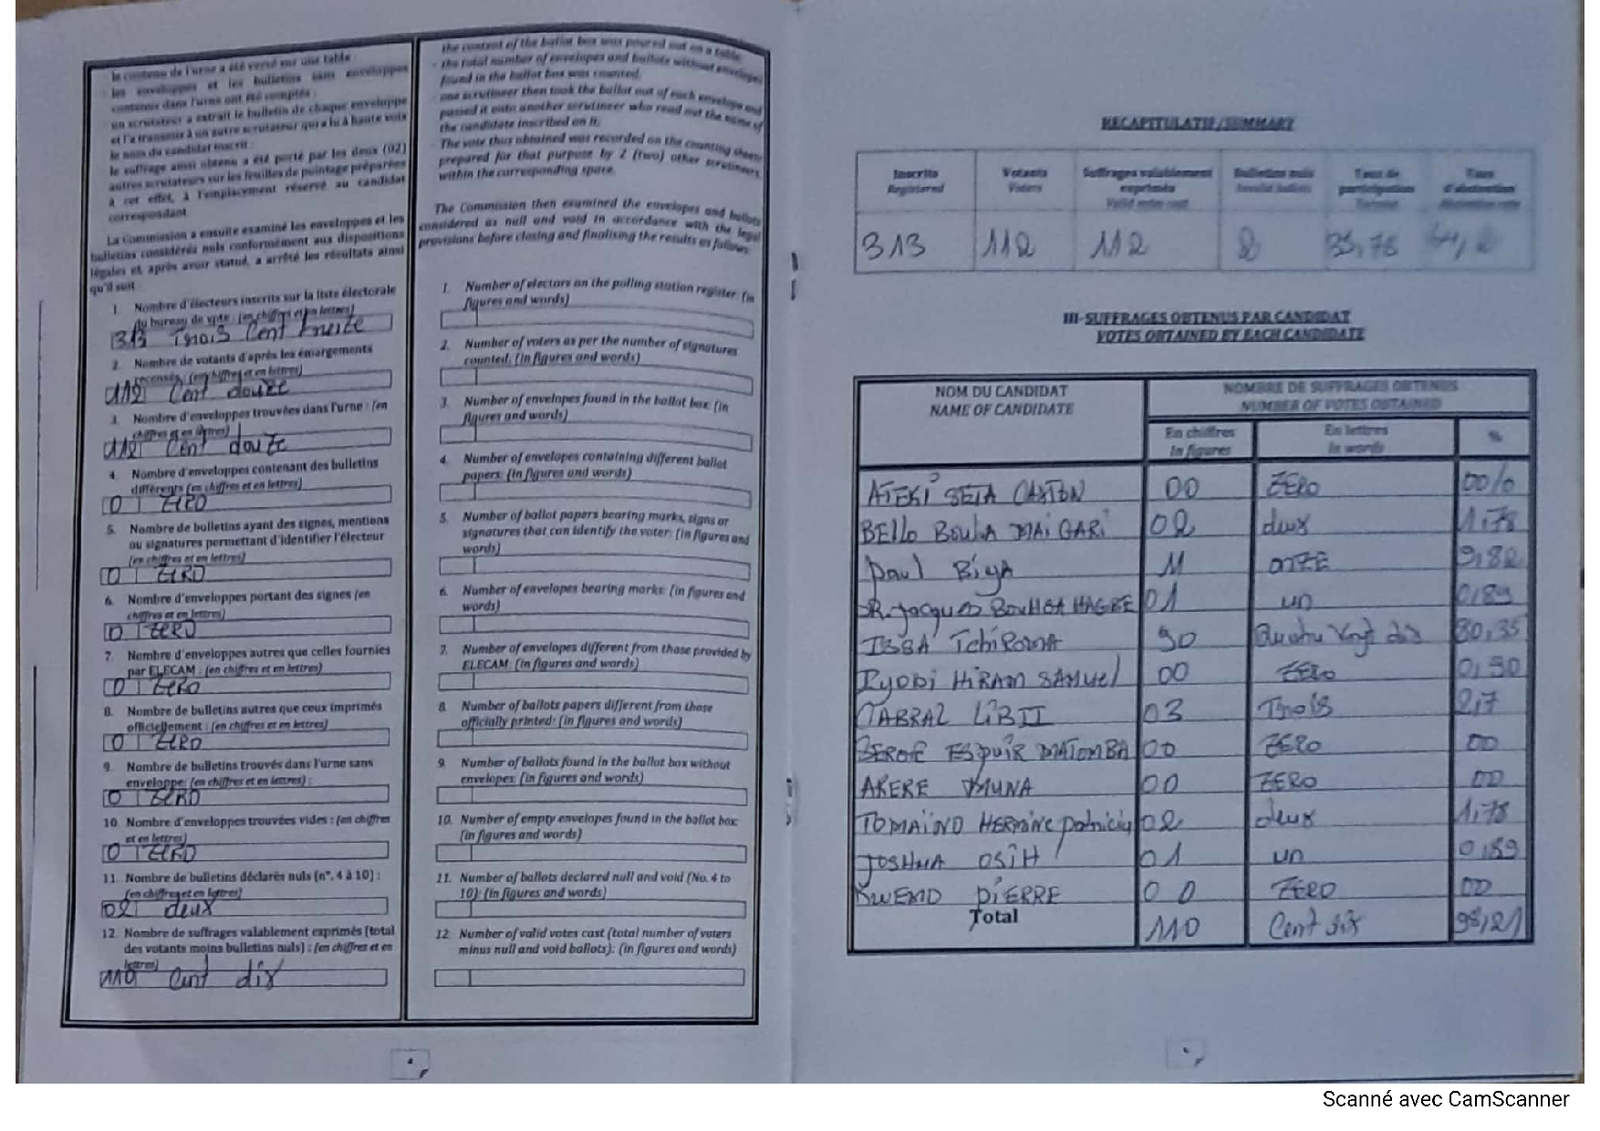 le contenu de l'urne a été versé sur une table
- les enveloppes et les bulletins sans enveloppes
contenus dans l'urne ont été comptés
un scrutateur a extrait le bulletin de chaque enveloppe
et l'a transmis à un autre scrutateur qui a lu à haute voix
le nom du candidat inscrit
le suffrage ainsi obtenu a été porté par les deux (02)
autres scrutateurs sur les feuilles de pointage préparées
à cet effet, à l'emplacement réservé au candidat
correspondant
La Commission a ensuite examiné les enveloppes et les
bulletins considérés nuls conformément aux dispositions
légales et après avoir statué, a arrêté les résultats ainsi
qu'il suit
1. Nombre d'électeurs inscrits sur la liste électorale
du bureau de vote : (en chiffres et en lettres)
313 Trois Cent treize
2. Nombre de votants d'après les émargements
recensés : (en chiffres et en lettres)
112 Cent douze
3. Nombre d'enveloppes trouvées dans l'urne : (en
chiffres et en lettres)
112 Cent douze
4. Nombre d'enveloppes contenant des bulletins
différents (en chiffres et en lettres)
0 ZERO
5. Nombre de bulletins ayant des signes, mentions
ou signatures permettant d'identifier l'électeur
(en chiffres et en lettres)
0 ZERO
6. Nombre d'enveloppes portant des signes (en
chiffres et en lettres)
0 ZERO
7. Nombre d'enveloppes autres que celles fournies
par ELECAM : (en chiffres et en lettres)
0 ZERO
8. Nombre de bulletins autres que ceux imprimés
officiellement : (en chiffres et en lettres)
0 ZERO
9. Nombre de bulletins trouvés dans l'urne sans
enveloppe: (en chiffres et en lettres) :
0 ZERO
10. Nombre d'enveloppes trouvées vides : (en chiffres
et en lettres)
0 ZERO
11. Nombre de bulletins déclarés nuls (n°. 4 à 10) :
(en chiffres et en lettres)
02 deux
12. Nombre de suffrages valablement exprimés (total
des votants moins bulletins nuls) : (en chiffres et en
lettres)
110 Cent dix
the content of the ballot box was poured out on a table
- the total number of envelopes and ballots without envelopes
found in the ballot box was counted.
- one scrutineer then took the ballot out of each envelope and
passed it onto another scrutineer who read out the name of
the candidate inscribed on it.
- The vote thus obtained was recorded on the counting sheets
prepared for that purpose by 2 (two) other scrutineers
within the corresponding space.
The Commission then examined the envelopes and ballots
considered as null and void in accordance with the legal
provisions before closing and finalising the results as follows:
1. Number of electors on the polling station register: (in
figures and words)
2. Number of voters as per the number of signatures
counted: (in figures and words)
3. Number of envelopes found in the ballot box: (in
figures and words)
4. Number of envelopes containing different ballot
papers: (in figures and words)
5. Number of ballot papers bearing marks, signs or
signatures that can identify the voter: (in figures and
words)
6. Number of envelopes bearing marks: (in figures and
words)
7. Number of envelopes different from those provided by
ELECAM: (in figures and words)
8. Number of ballots papers different from those
officially printed: (in figures and words)
9. Number of ballots found in the ballot box without
envelopes: (in figures and words)
10. Number of empty envelopes found in the ballot box:
(in figures and words)
11. Number of ballots declared null and void (No. 4 to
10): (in figures and words)
12. Number of valid votes cast (total number of voters
minus null and void ballots): (in figures and words)
RECAPITULATIF/SUMMARY
Inscrits Registered | Votants Voters | Suffrages valablement exprimés Valid votes cast | Bulletins nuls Invalid ballots | Taux de participation Turnout | Taux d'abstention Abstention rate
313 112 112 2 35,78
III-SUFFRAGES OBTENUS PAR CANDIDAT
VOTES OBTAINED BY EACH CANDIDATE
NOM DU CANDIDAT
NAME OF CANDIDATE
NOMBRE DE SUFFRAGES OBTENUS
NUMBER OF VOTES OBTAINED
En chiffres In figures | En lettres In words | %
ATEKI SETA CAXTON 00 ZERO 00%
BELLO BOUBA MAIGARI 02 deux 1,78
Paul Biya 11 onze 9,82
DR. Jacques BOUHGA HAGBE 01 un 0,89
ISSA Tchiroma 90 Quatre Vingt dix 80,35
Iyodi HiRAM SAMUEL 00 ZERO 0,90
CABRAL LIBII 03 Trois 2,7
SERGE ESPOIR MATOMBA 00 ZERO 00
AKERE MUNA 00 ZERO 00
TOMAÏNO HERMINE Patricia 02 deux 1,78
JOSHUA OSIH 01 un 0,89
KWEMO PIERRE 00 ZERO 00
Total 110 Cent dix 98,21
Scanné avec CamScanner